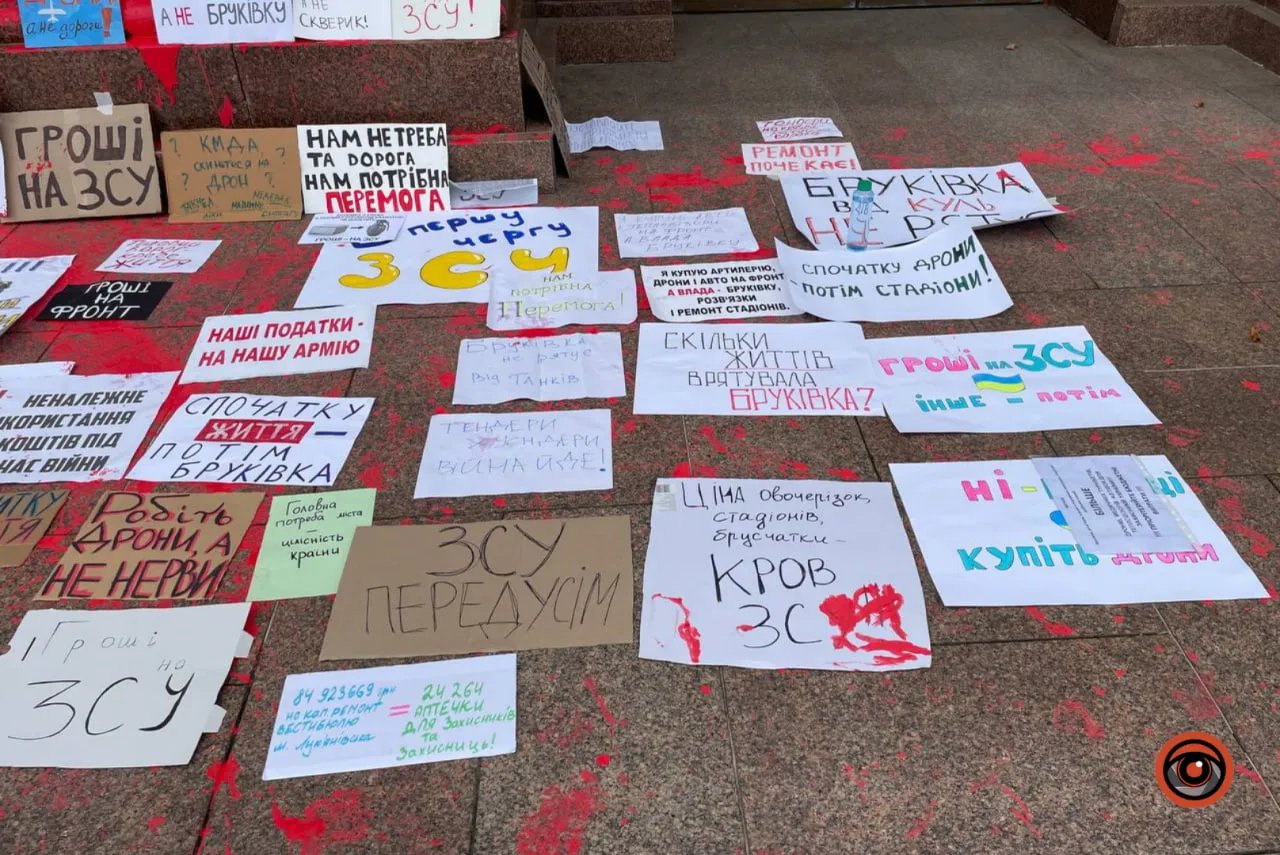 а не дороги!
А НЕ БРУКІВКУ
А НЕ
СКВЕРИК!
ЗСУ!
ГРОШІ
НА ЗСУ
? КМДА, ?
скиньтеся на
? ДРОН ?
НАМ НЕ ТРЕБА
ТА DОРОГА
НАМ ПОТРІБНА
ПЕРЕМОГА
РЕМОНТ
ПОЧЕКАЄ!
БРУКІВКА
ВІД КУЛЬ
НЕ
першу
чергу
ЗСУ
НАМ
потрібна
Перемога!
НА ФРОНТ
А ВЛАДА
БРУКІВКУ
Я КУПУЮ АРТИЛЕРІЮ,
ДРОНИ І АВТО НА ФРОНТ
А ВЛАДА - БРУКІВКУ,
РОЗВ'ЯЗКИ
І РЕМОНТ СТАДІОНІВ.
СПОЧАТКУ ДРОНИ
- ПОТІМ СТАДІОНИ!
ГРОШІ НА
ФРОНТ
НАШІ ПОДАТКИ -
НА НАШУ АРМІЮ
Бруківка
не рятує
від танків
СКІЛЬКИ
ЖИТТІВ
ВРЯТУВАЛА
БРУКІВКА?
ГРОШІ НА ЗСУ
ІНШЕ - ПОТІМ
НЕНАЛЕЖНЕ
КОРИСТАННЯ
КОШТІВ ПІД
ЧАС ВІЙНИ
СПОЧАТКУ
ЖИТТЯ —
ПОТІМ
БРУКІВКА
ТЕНДЕРИ
ВІЙНА ЙДЕ!
РОБІТЬ
ДРОНИ, А
НЕ НЕРВИ!
Головна
потреба міста
—
цілісність
країни
ЗСУ
ПЕРЕДУСІМ
ЦІНА ОВОЧЕРІЗОК,
СТАДІОНІВ,
БРУСЧАТКИ -
КРОВ
ЗС
НІ -
КУПІТЬ ДРОНИ
БІЛЬШЕ
Гроші
на
ЗСУ
84 923669 грн
на кап.ремонт
ВЕСТИБЮЛЮ
м. Лук'янівська
=
24 264
АПТЕЧКИ
ДЛЯ Захисників
та
Захисниць!